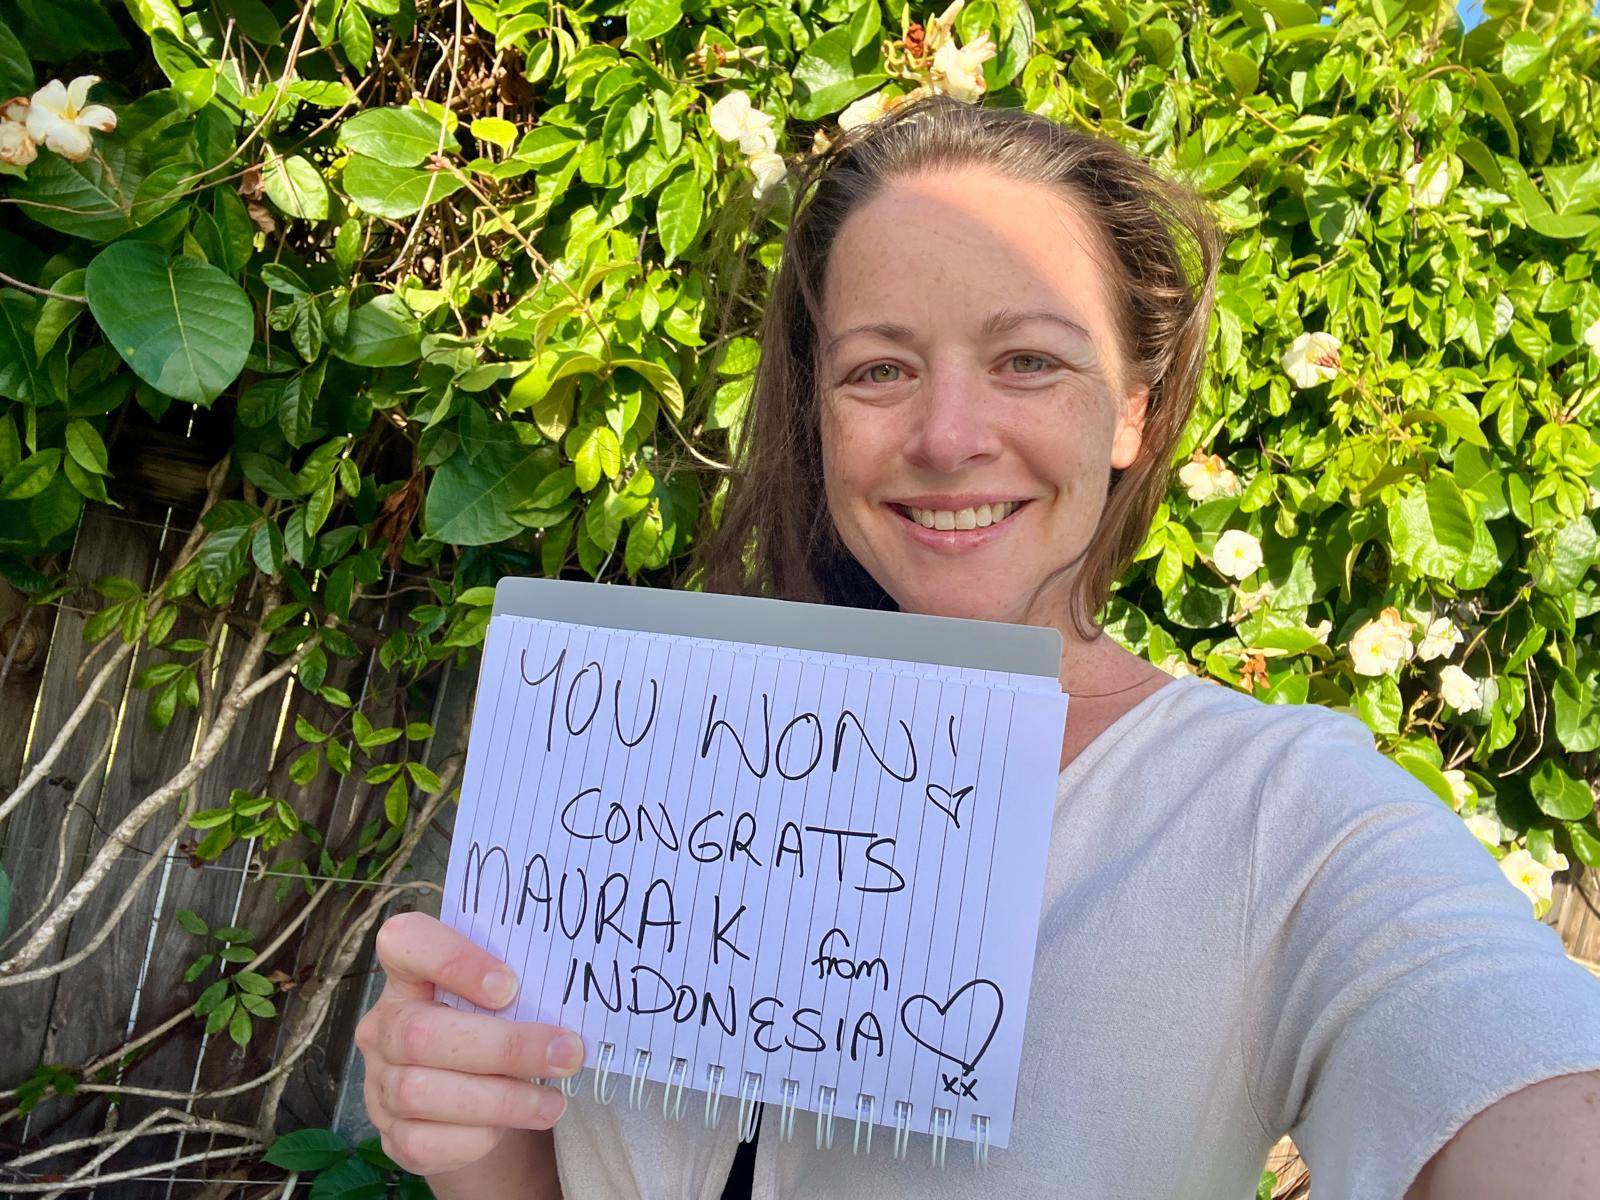 YOU WON!
CONGRATS
MAURA K from
INDONESIA
xx